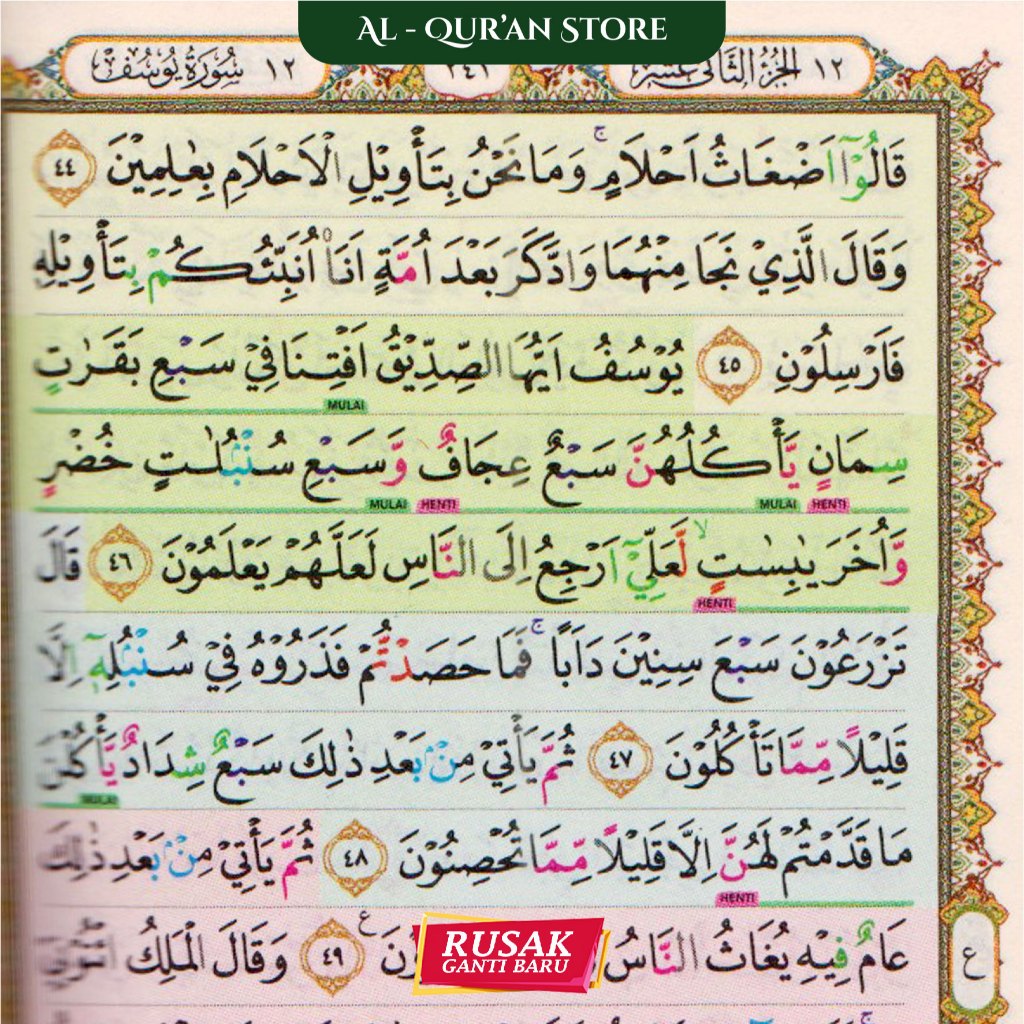 AL - QUR’AN STORE
الجُزْءُ الثَّانِى عَشَرَ ١٢
٢٤١
سُوْرَةُ يُوْسُفَ ١٢
قَالُوْٓا اَضْغَاثُ اَحْلَامٍ ۚ وَمَا نَحْنُ بِتَأْوِيْلِ الْاَحْلَامِ بِعٰلِمِيْنَ ٤٤
وَقَالَ الَّذِيْ نَجَا مِنْهُمَا وَادَّكَرَ بَعْدَ اُمَّةٍ اَنَا۠ اُنَبِّئُكُمْ بِتَأْوِيْلِهٖ
فَاَرْسِلُوْنِ ٤٥ يُوْسُفُ اَيُّهَا الصِّدِّيْقُ اَفْتِنَا فِيْ سَبْعِ بَقَرٰتٍ
MULAI
سِمَانٍ يَّأْكُلُهُنَّ سَبْعٌ عِجَافٌ وَّسَبْعِ سُنْۢبُلٰتٍ خُضْرٍ
HENTI MULAI HENTI MULAI
وَّاُخَرَ يٰبِسٰتٍ ۙ لَّعَلِّيْٓ اَرْجِعُ اِلَى النَّاسِ لَعَلَّهُمْ يَعْلَمُوْنَ ٤٦ قَالَ
HENTI
تَزْرَعُوْنَ سَبْعَ سِنِيْنَ دَاَبًا ۚ فَمَا حَصَدْتُّمْ فَذَرُوْهُ فِيْ سُنْۢبُلِهٖٓ اِلَّا
قَلِيْلًا مِّمَّا تَأْكُلُوْنَ ٤٧ ثُمَّ يَأْتِيْ مِنْۢ بَعْدِ ذٰلِكَ سَبْعٌ شِدَادٌ يَّأْكُلْنَ
MULAI
مَا قَدَّمْتُمْ لَهُنَّ اِلَّا قَلِيْلًا مِّمَّا تُحْصِنُوْنَ ٤٨ ثُمَّ يَأْتِيْ مِنْۢ بَعْدِ ذٰلِكَ
HENTI
عَامٌ فِيْهِ يُغَاثُ النَّاسُ ع ٤٩ وَقَالَ الْمَلِكُ ائْتُوْنِيْ
ع
RUSAK
GANTI BARU